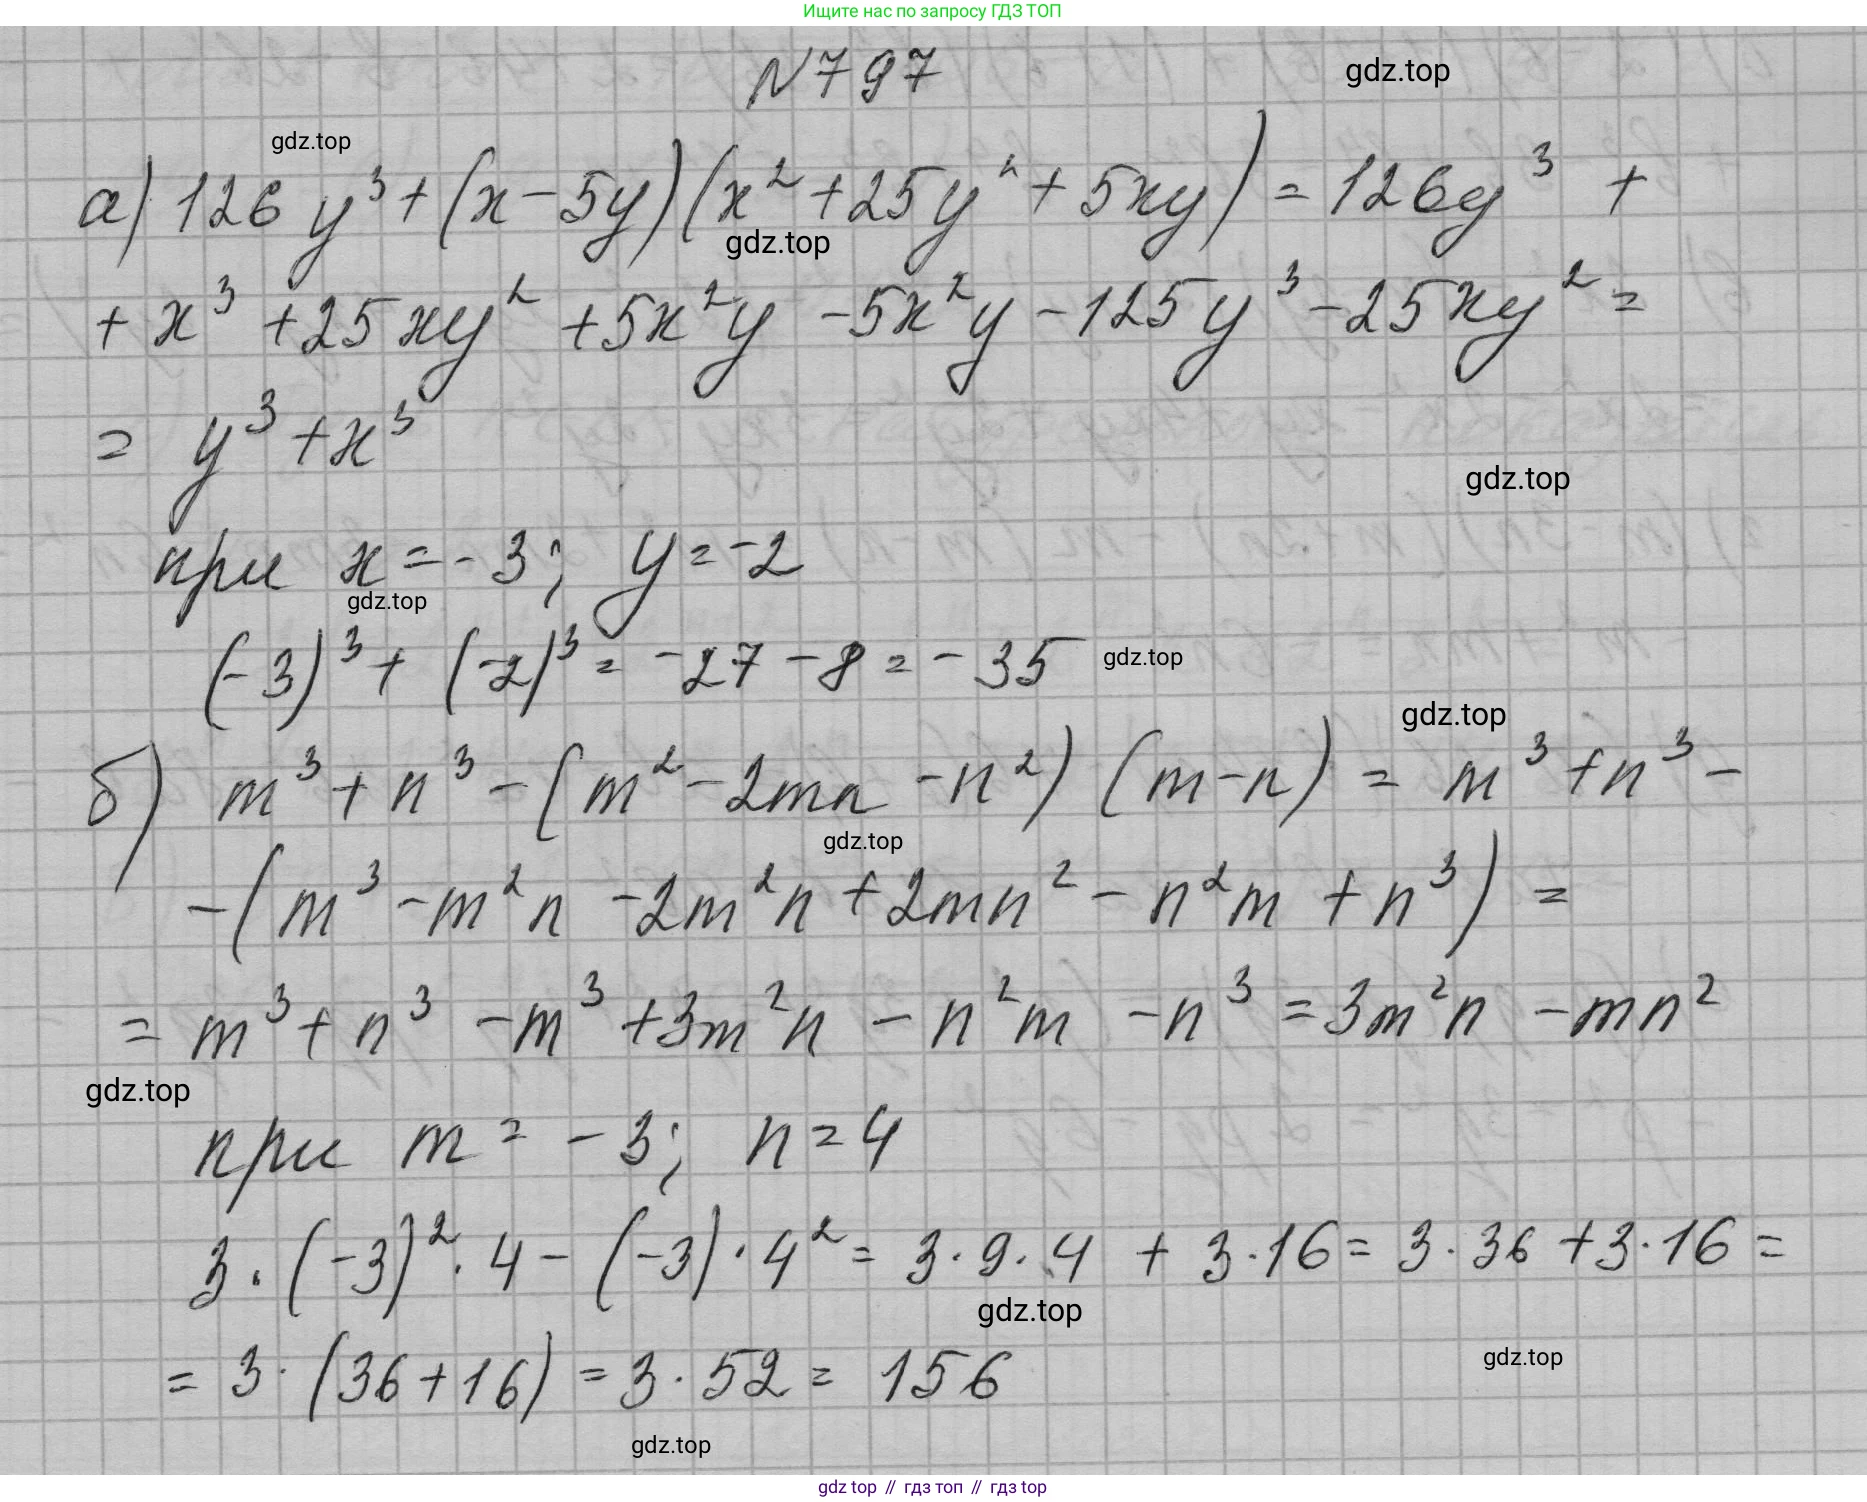 Ищите нас по запросу ГДЗ ТОП
N797
gdz.top
gdz.top
а) 126y³+(x-5y)(x²+25y²+5xy)=126y³ +
gdz.top
+ x³ +25xy² +5x²y -5x²y -125y³ -25xy² =
= y³ +x³
gdz.top
при x=-3; y=-2
gdz.top
(-3)³ + (-2)³ = -27 -8 = -35
gdz.top
gdz.top
б) m³+n³-(m²-2mn-n²)(m-n) = m³+n³-
gdz.top
-(m³-m²n-2m²n+2mn²-n²m+n³) =
= m³+n³-m³+3m²n-n²m-n³=3m²n-mn²
gdz.top
при m=-3; n=4
3·(-3)²·4-(-3)·4² = 3·9·4 + 3·16 = 3·36+3·16 =
gdz.top
= 3·(36+16) = 3·52 = 156
gdz.top
gdz.top
gdz top // гдз топ // гдз top